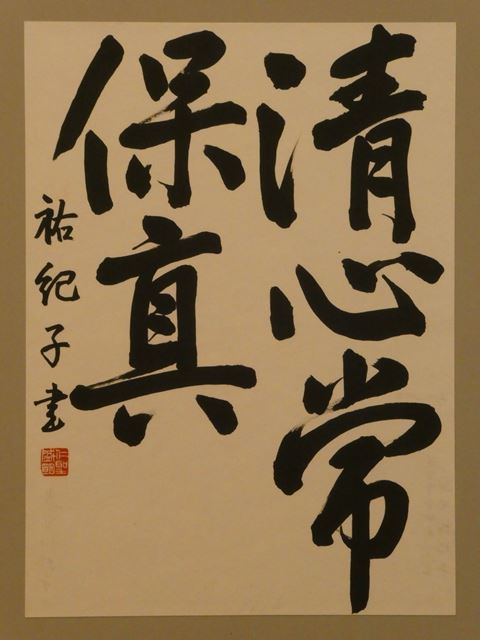 清心常
保真
祐紀子書